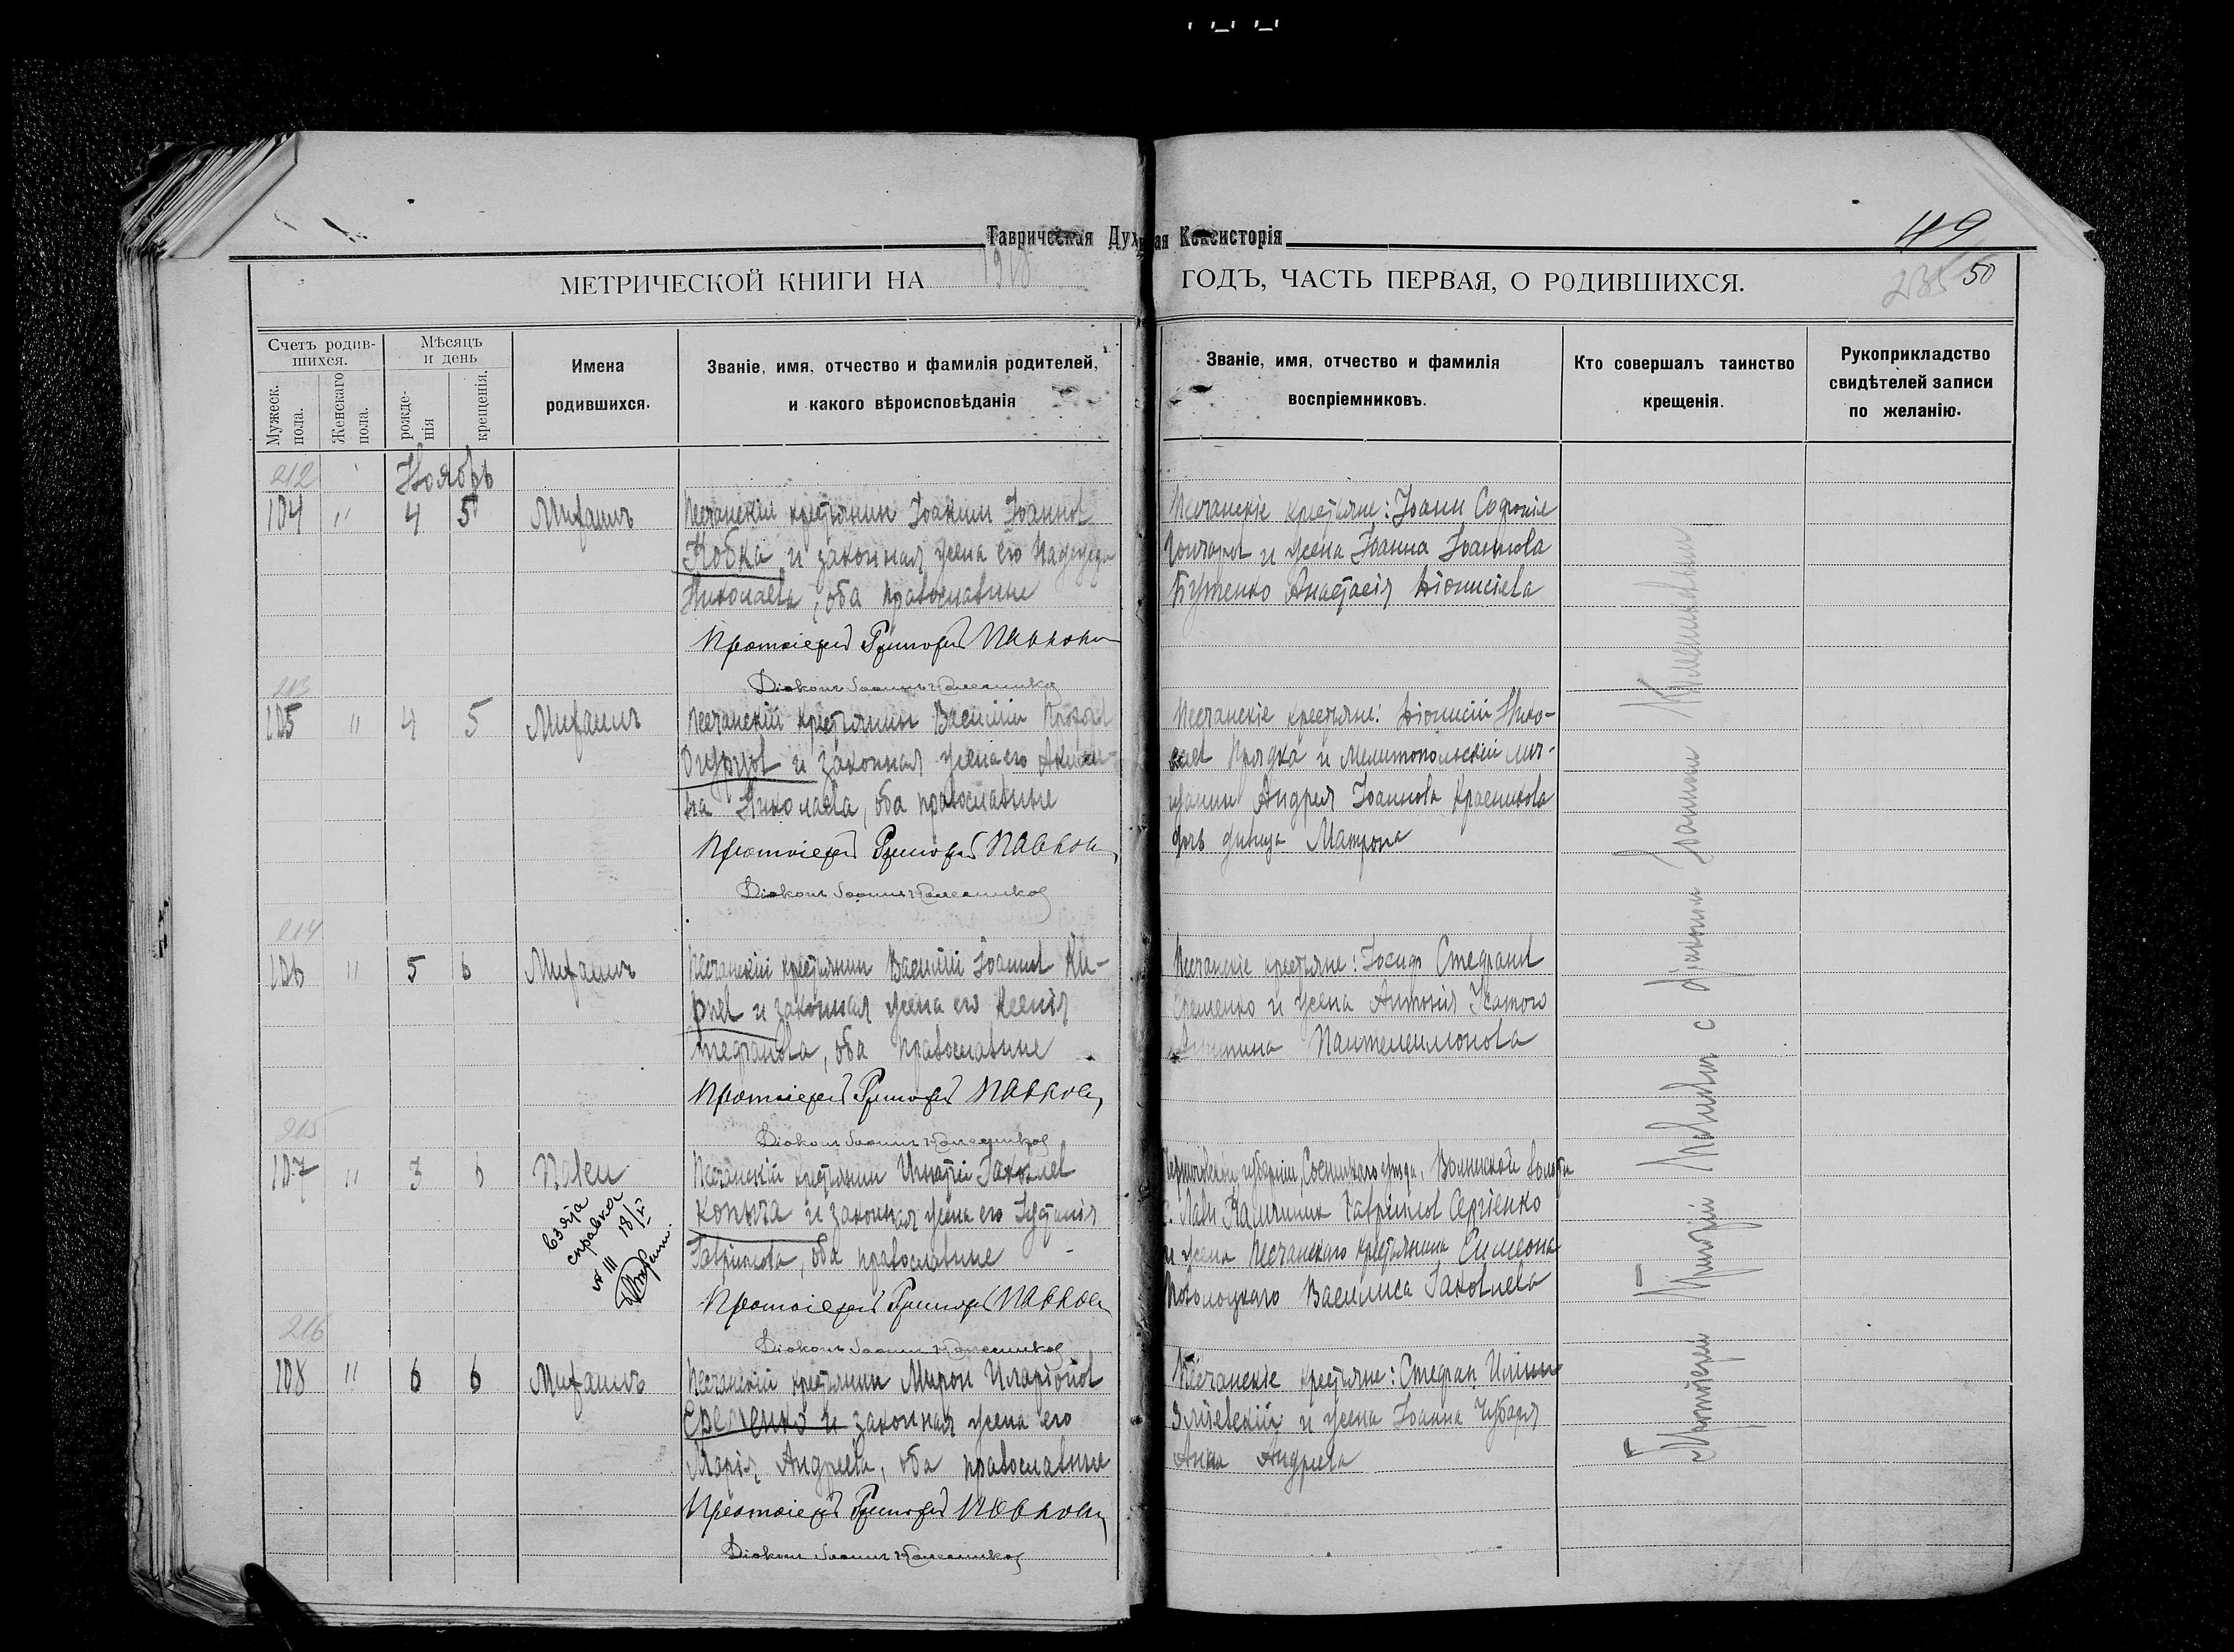 Таврическая Духовная Консисторія
49
МЕТРИЧЕСКОЙ КНИГИ НА 1918 ГОДЪ, ЧАСТЬ ПЕРВАЯ, О РОДИВШИХСЯ.
50
Счетъ родив-
шихся.
Мужеск.
пола.
Женскаго
пола.
Мѣсяцъ
и день
рожде-
нія
крещенія.
Имена
родившихся.
Званіе, имя, отчество и фамилія родителей,
и какого вѣроисповѣданія
Званіе, имя, отчество и фамилія
воспріемниковъ.
Кто совершалъ таинство
крещенія.
Рукоприкладство
свидѣтелей записи
по желанію.
212
Ноябрь
104 " 4 5 Михаилъ
Песчанскій крестьянин Іоаким Іоаннов
Кобка и законная жена его Надежда
Николаева, оба православные
Протоіерей Григорій
Діаконъ Іоаннъ
Песчанскіе крестьяне: Іоанн Софоніев
Гончаров и жена Іоанна Іоаннова
Бутенко Анастасія Діонисіева
213
105 " 4 5 Михаилъ
Песчанскій крестьянин Василій
и законная жена его Акили-
на Николаева, оба православные
Протоіерей Григорій
Діаконъ Іоаннъ
Песчанскіе крестьяне: Діонисій Нико-
лаев Прядка и Мелитопольскій мѣ-
щанин Андрея Іоаннова Красникова
дочь дѣвица Матрона
214
106 " 5 6 Михаилъ
Песчанскій крестьянин Василій Іоаннов
и законная жена его Ксенія
Стефанова, оба православные
Протоіерей Григорій
Діаконъ Іоаннъ
Песчанскіе крестьяне: Іосиф Стефанов
Еременко и жена Антонія Усатого
Пантелеимонова
215
107 " 3 6 Павел
взята
справка
№ III 18/V
Песчанскій крестьянин Игнатій Іаковлев
Копыча и законная жена его Іустинія
Гавриилова, оба православные
Протоіерей Григорій
Діаконъ Іоаннъ
Черниговской губерніи, Сосницкаго уѣзда, Волынской волости
Гавриилов Сергіенко
и жена Песчанскаго крестьянина Симеона
Василиса Іаковлева
216
108 " 6 6 Михаилъ
Песчанскій крестьянин Мирон Иларіонов
Еременко и законная жена его
Марія Андреева, оба православные
Протоіерей Григорій
Діаконъ Іоаннъ
Песчанскіе крестьяне: Стефан Иліин
и жена Іоанна Чубаря
Анна Андреева
Протоіерей Григорій с Діаконом Іоанном